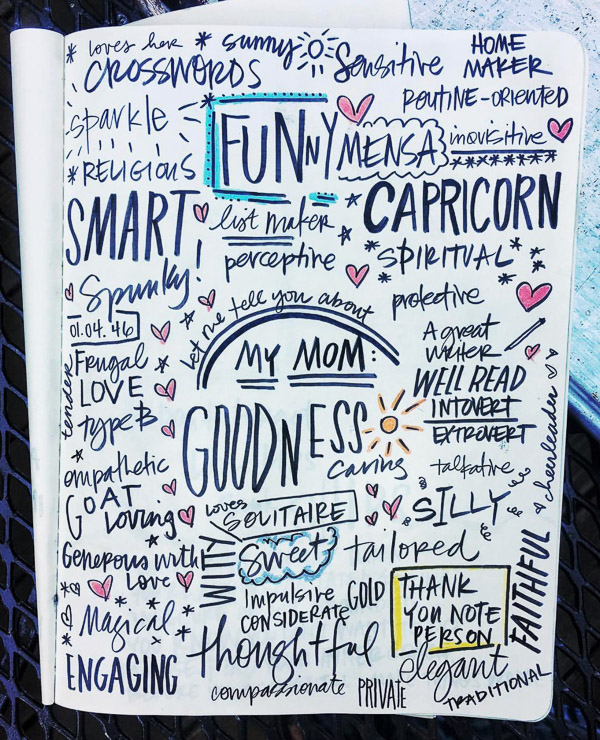 loves her
CROSSWORDS
sunny
Sensitive
HOME
MAKER
ROUTINE-ORIENTED
sparkle
FUNNY
MENSA
inquisitive
RELIGIOUS
SMART
list maker
CAPRICORN
perceptive
SPIRITUAL
Spunky!
protective
01.04.46
let me tell you about
MY MOM:
A great
writer
tender
Frugal
LOVE
type B
GOODNESS
WELL READ
INTOVERT
EXTROVERT
caring
talkative
& cheerleader
empathetic
GOAT
loving
loves
SOLITAIRE
SILLY
Generous with
Love
WITTY
Sweet
tailored
FAITHFUL
Impulsive
CONSIDERATE
GOLD
THANK
YOU NOTE
PERSON
Magical
thoughtful
elegant
ENGAGING
compassionate
PRIVATE
TRADITIONAL